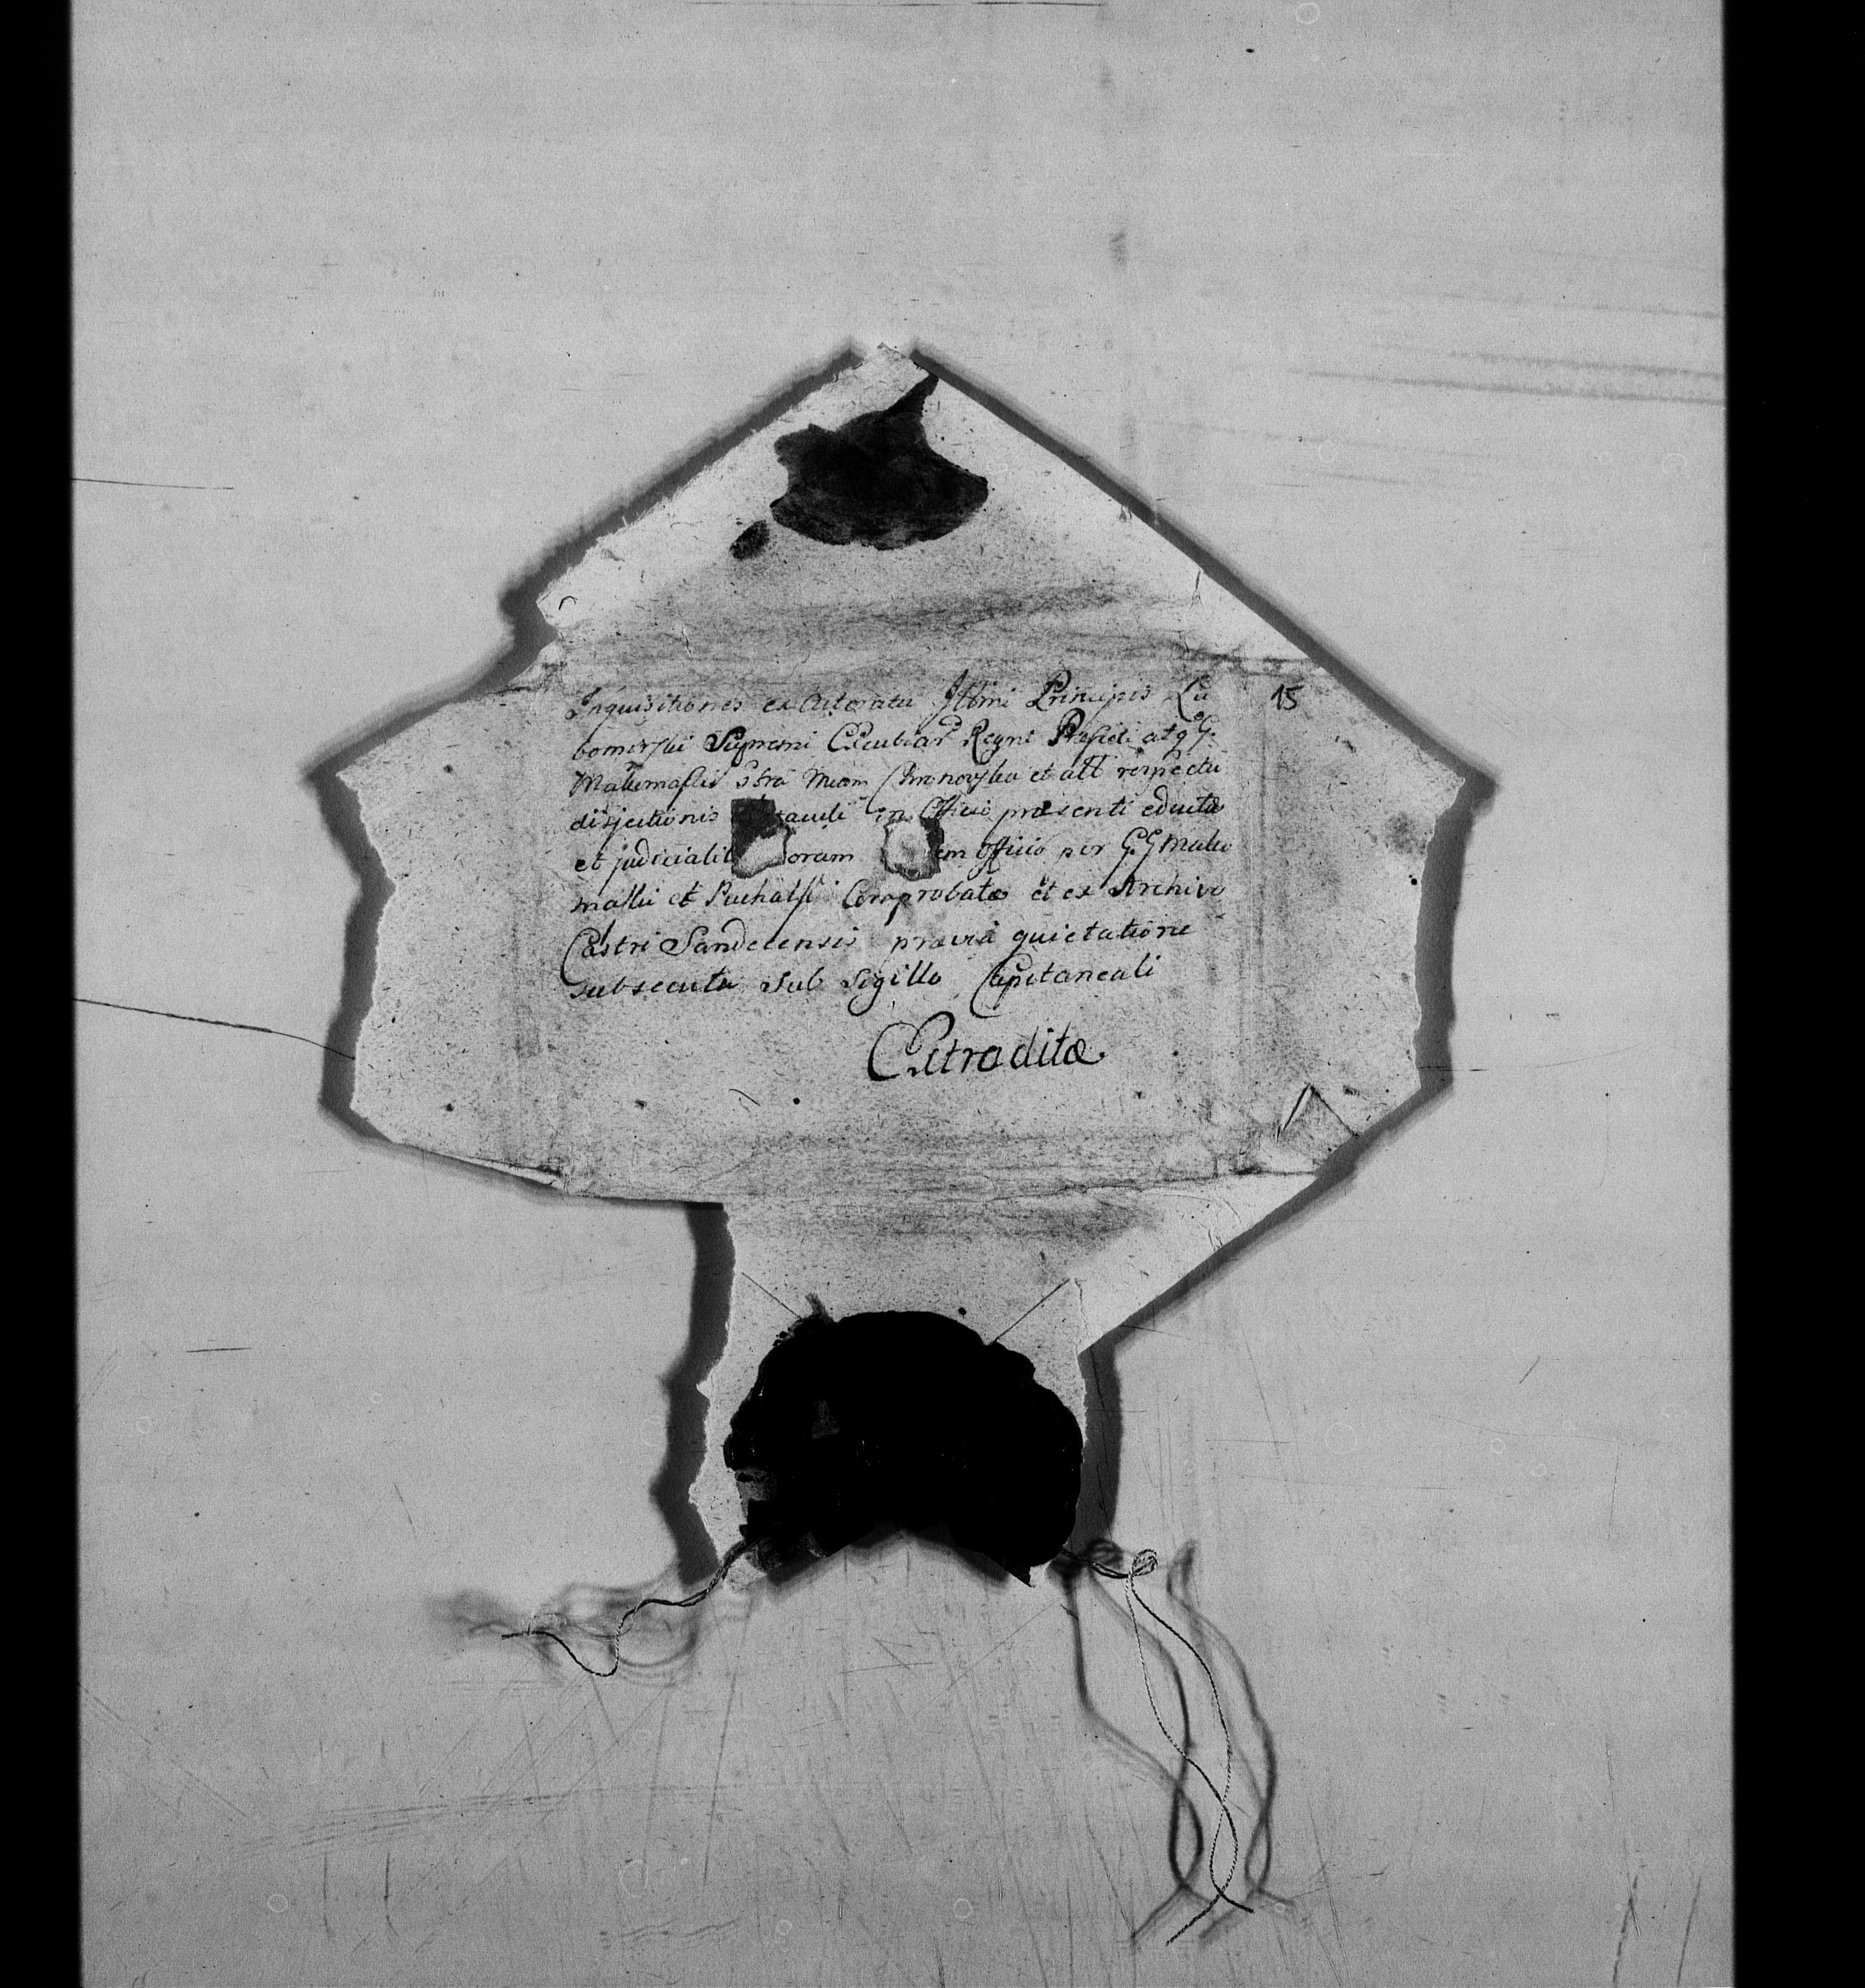 Inquisitiones ex Actoratu Illmi Principis Lu
bomirski Supremi Excubiar Regni Præfecti atq G.
Ctra et all respectu
disjectionis in Officio præsenti eductæ
et judicialit oram em Officio per G.G
et Puchalski Comprobatæ et ex Archivo
Castri Sandecensis prævia quietatione
subsecuta Sub Sigillo Capitaneali
Extraditæ
15